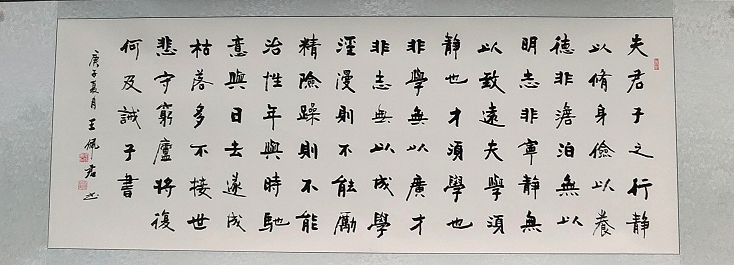 夫君子之行静
以脩身儉以養
德非澹泊無以
明志非寧静無
以致遠夫學須
静也才須學也
非學無以廣才
非志無以成學
淫漫則不能勵
精險躁則不能
治性年與時馳
意與日去遂成
枯落多不接世
悲守窮廬將復
何及誡子書
庚子夏月王佩君书